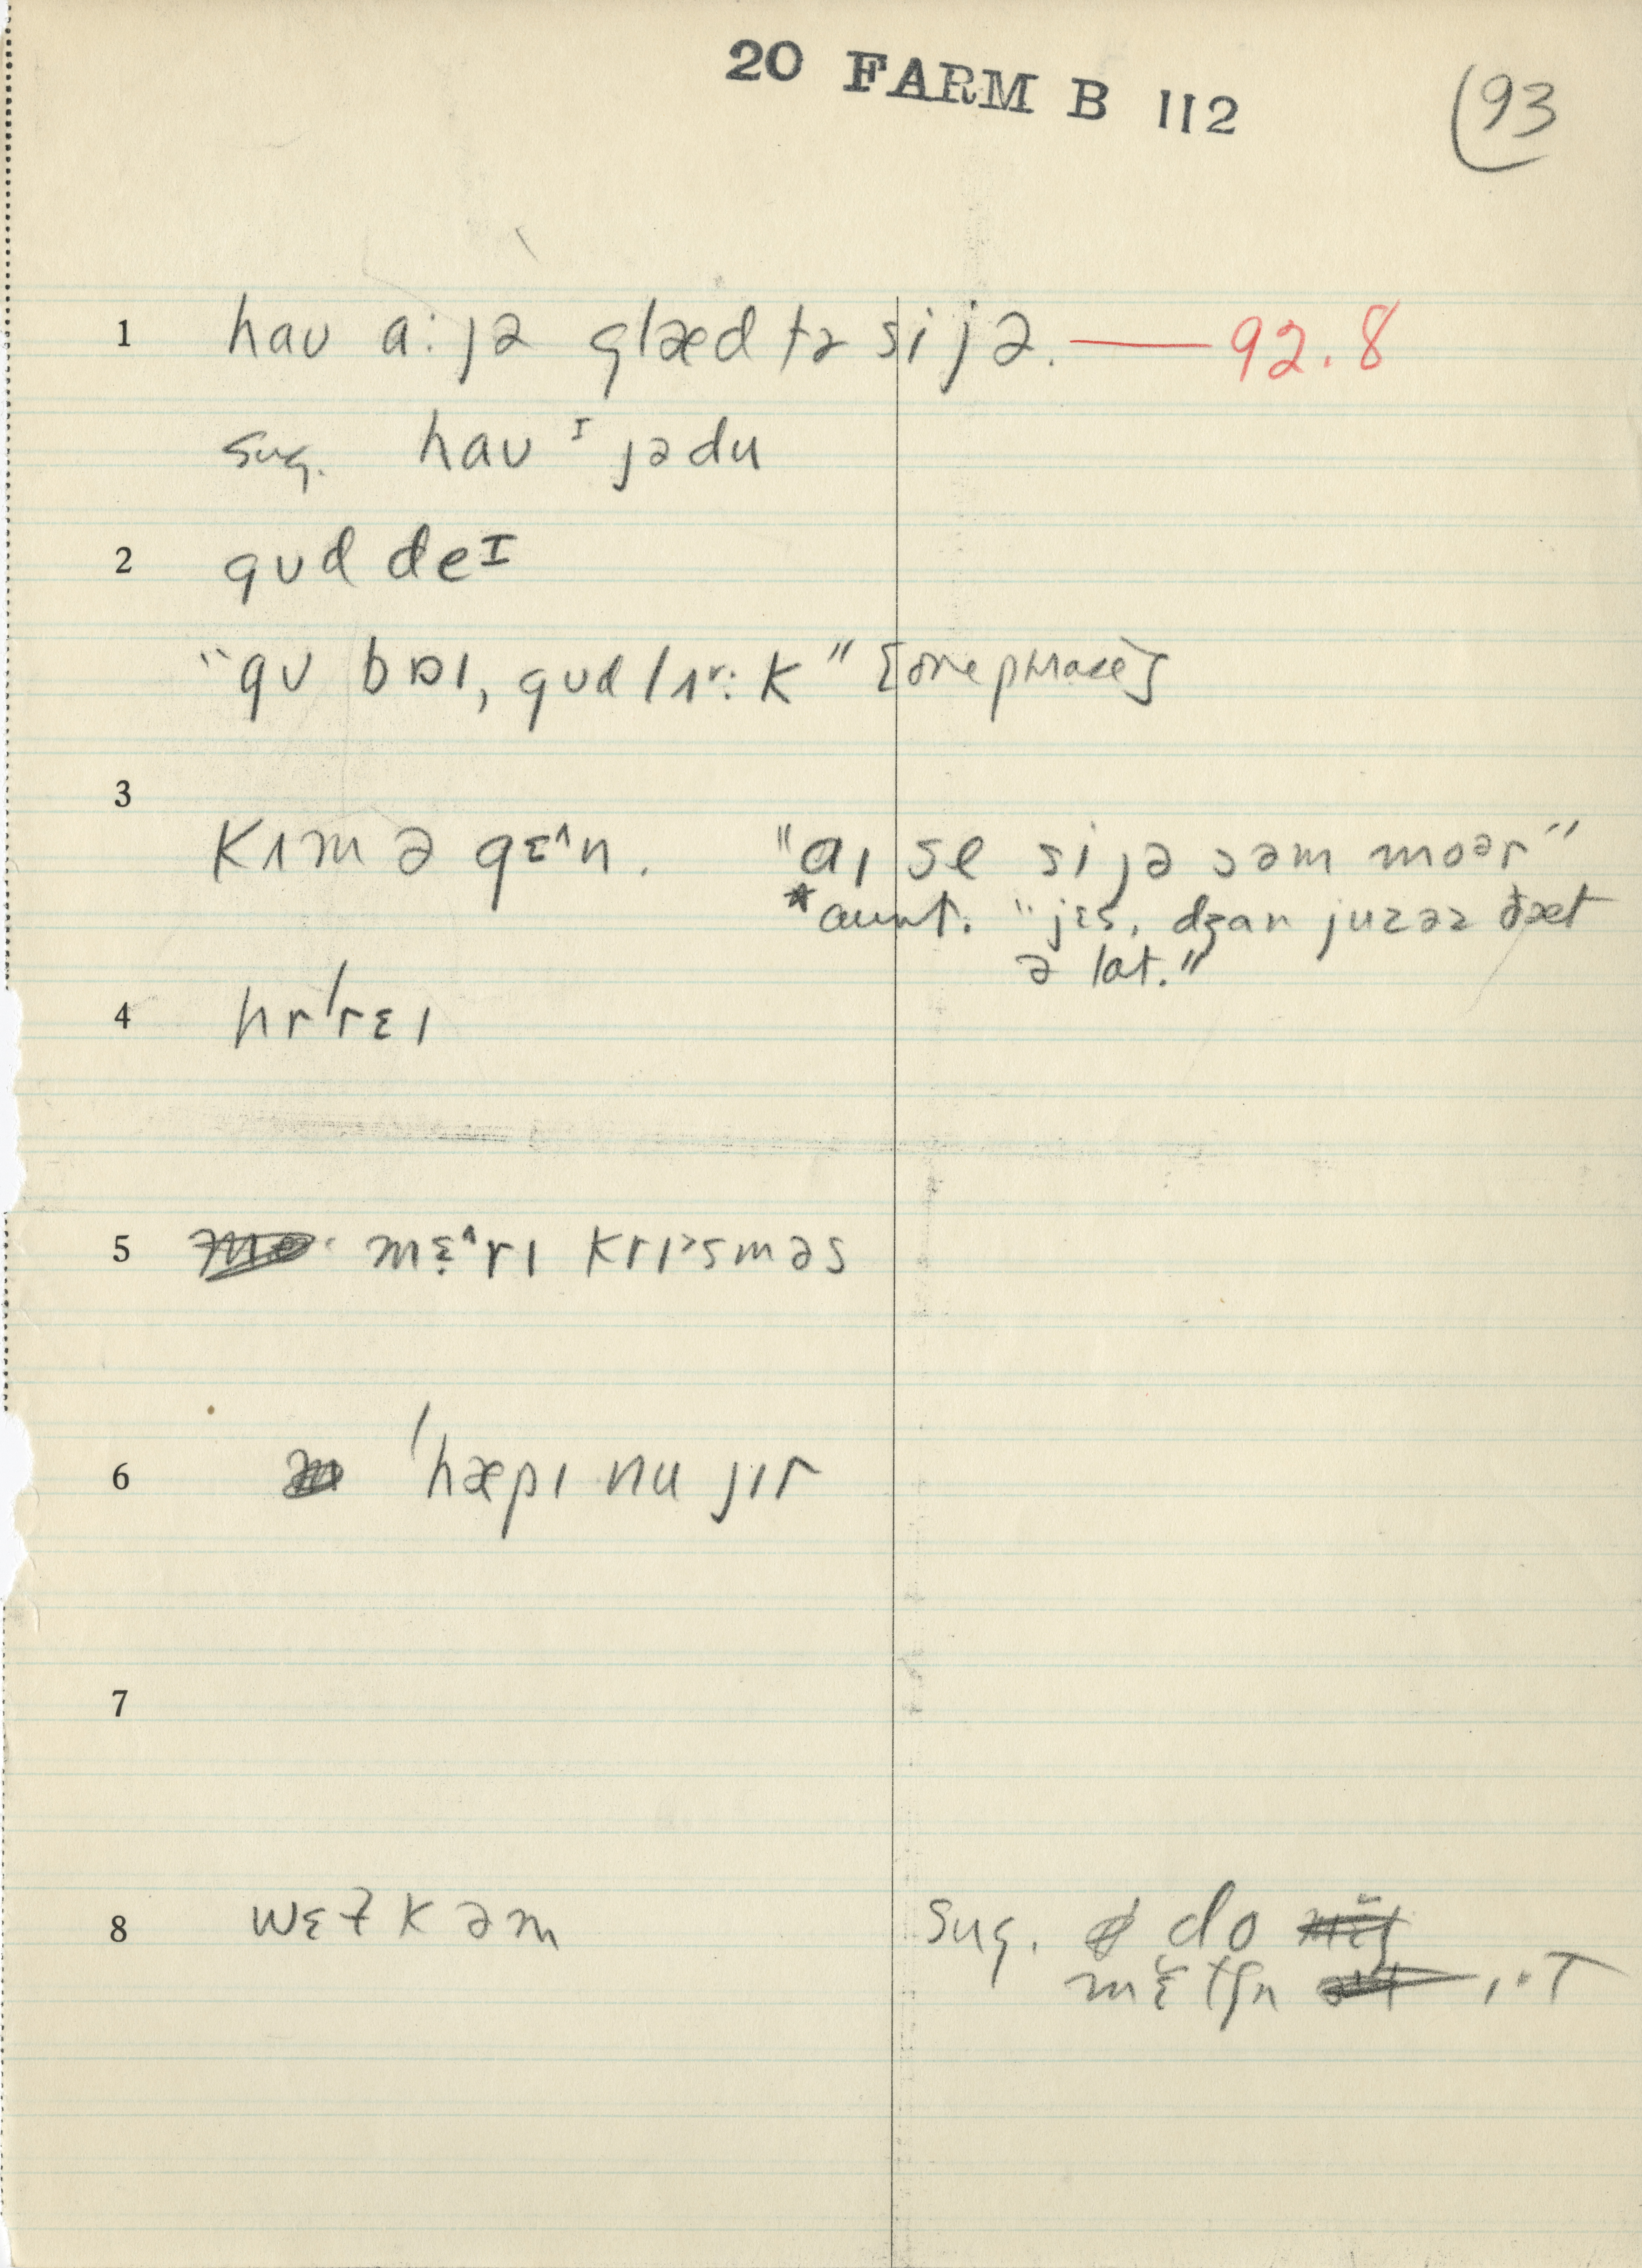 20 FARM B 112
(93
1 haʊ a: jə glæd tə si jə. — 92.8
sug. haʊ ᴵ jədu
2 gʊd deᴵ
"gʊ bɒɪ, gʊd lɪʳ: k" [one phrase]
3
kɪm ə gɛ^n. "aɪ se si jə səm moər"
*aunt. "jɛs, dʒan juzəz ðæt
ə lat."
4 hr'rɛɪ
5 mɛ̣^rɪ krɪ>sməs
6 'hæpɪ nu jɪr
7
8 wɛɫkəm sug. do
mɛ̆tʃn